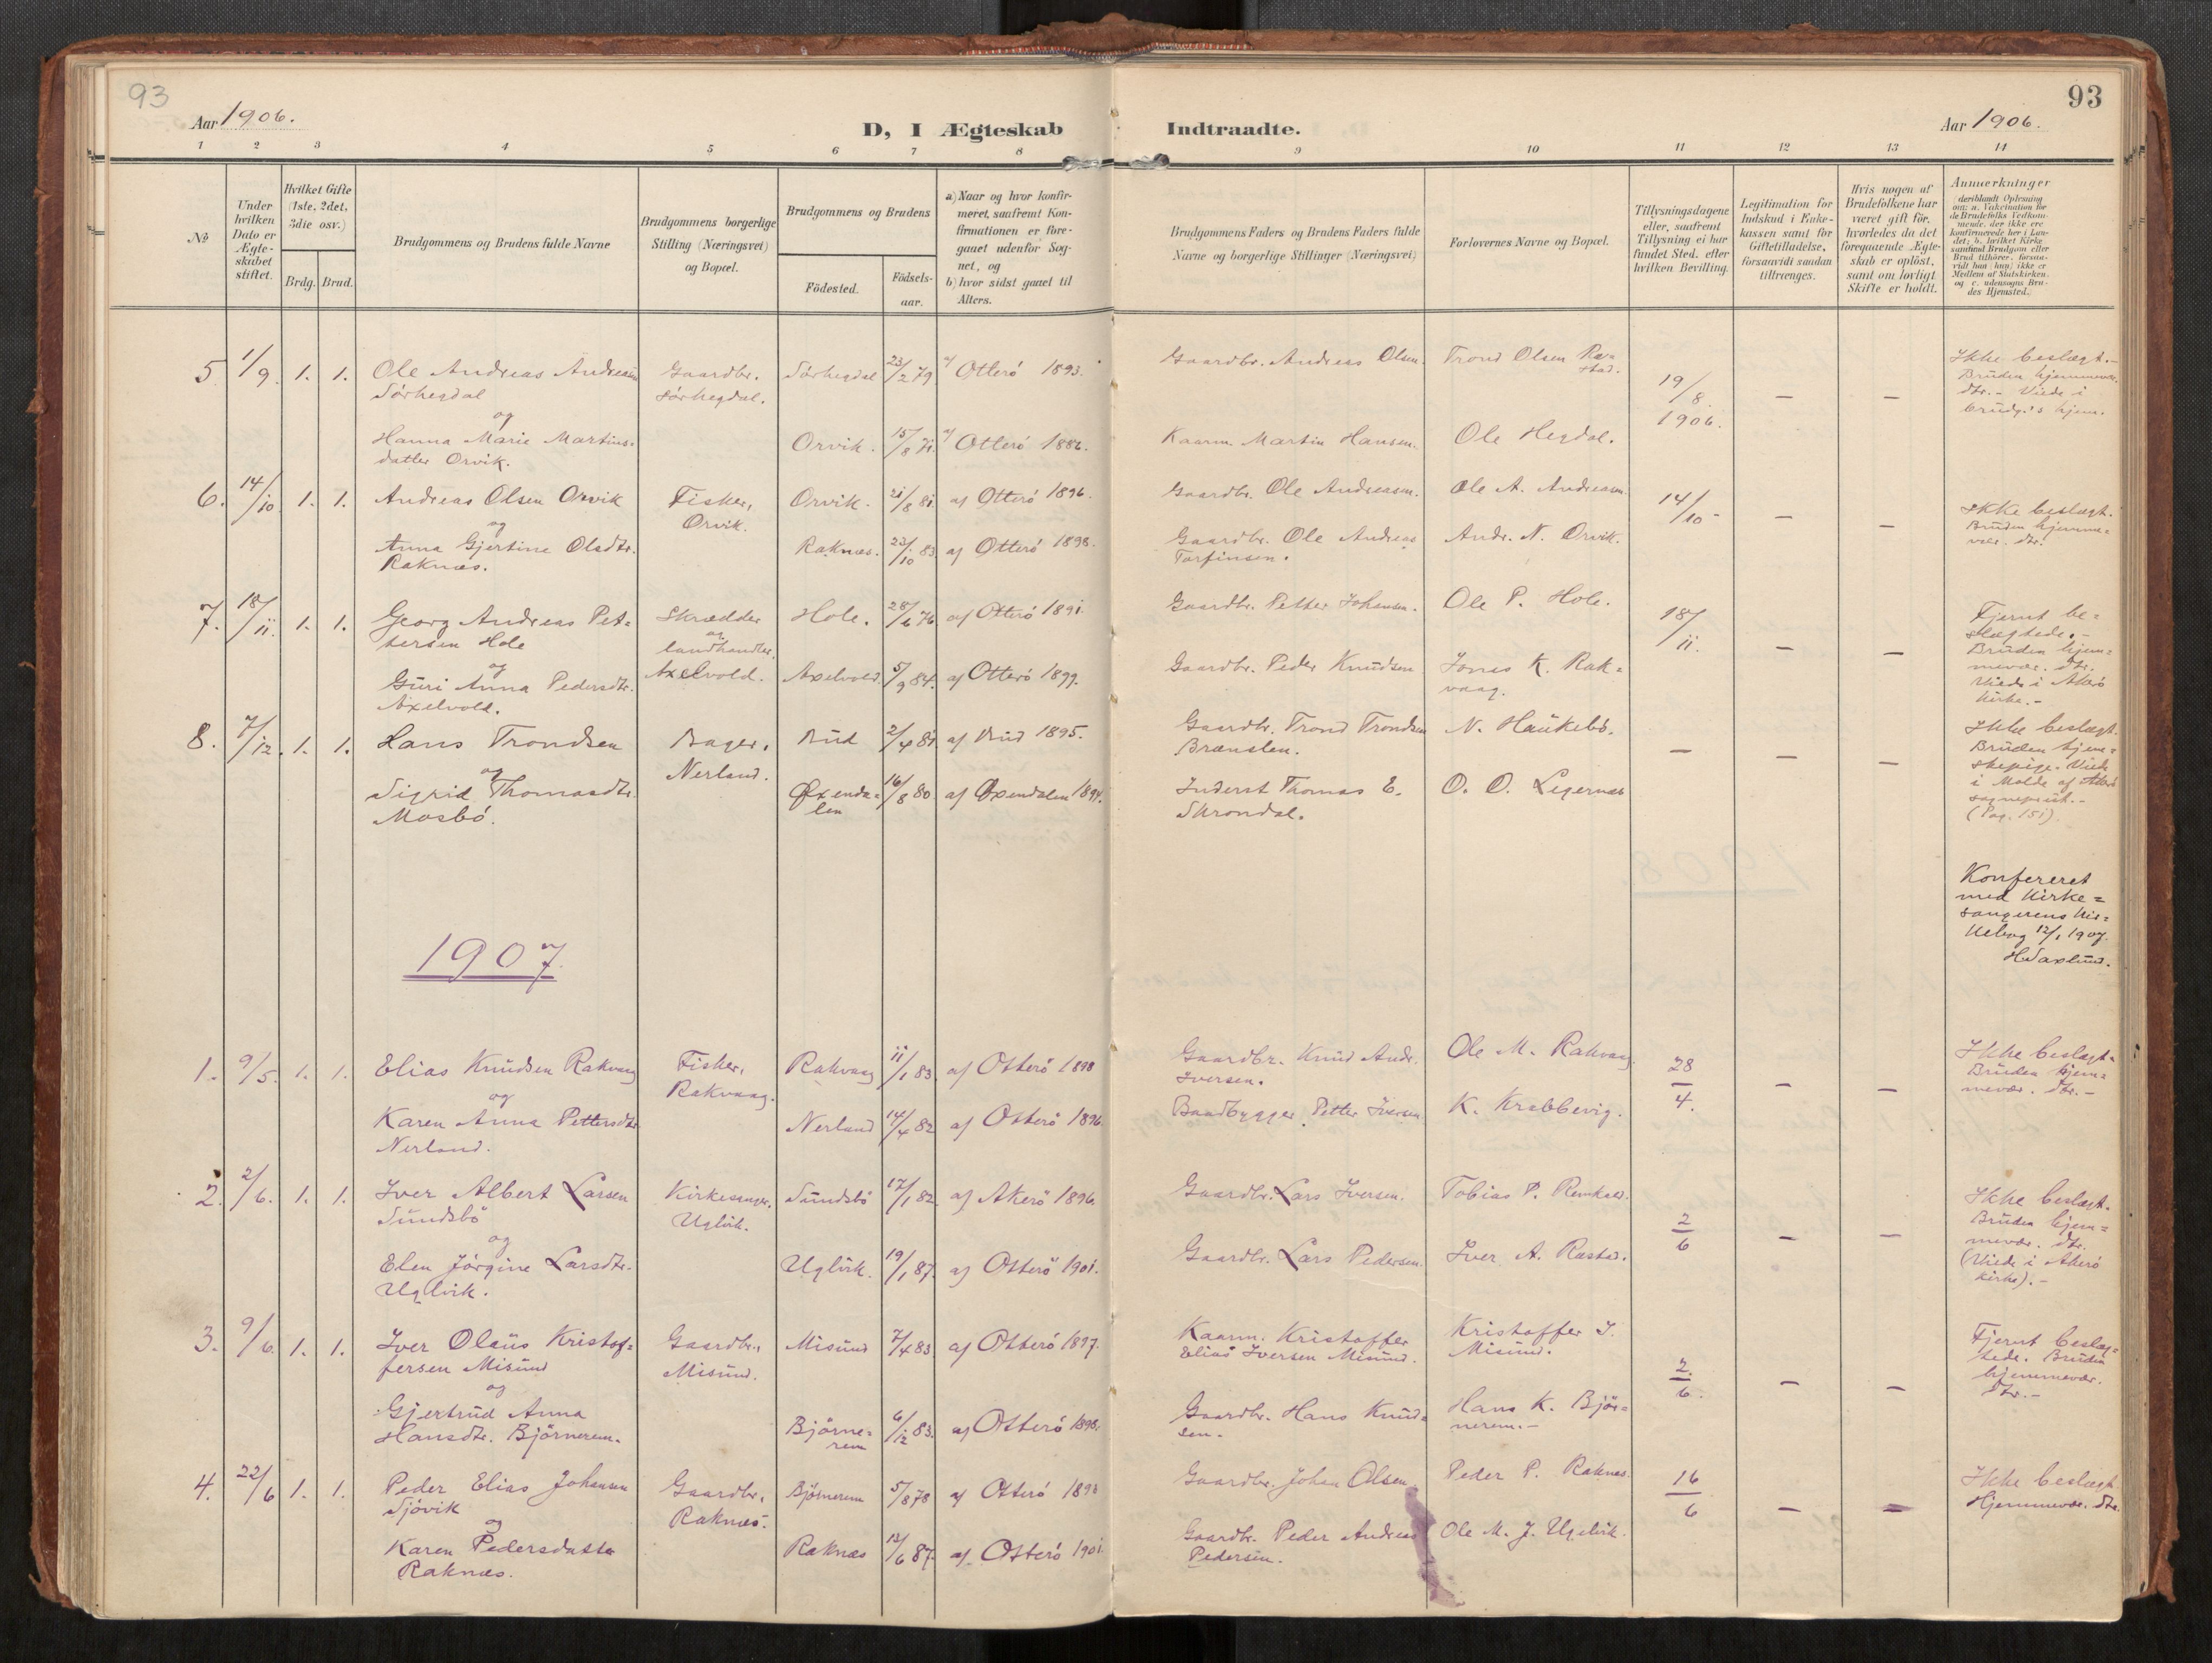 93
Aar 1906.
D, I Ægteskab
1 2 3 4 5 6 7 8
№
Under hvilken Dato er Ægteskabet stiftet.
Hvilket Gifte (1ste, 2det, 3die osv.)
Brdg. Brud.
Brudgommens og Brudens fulde Navne
Brudgommens borgerlige Stilling (Næringsvei) og Bopæl.
Brudgommens og Brudens
Födested.
Födsels-aar.
a) Naar og hvor konfirmeret, saafremt Konfirmationen er foregaaet udenfor Sognet, og
b) hvor sidst gaaet til Alters.
93
Indtraadte.
Aar 1906.
9 10 11 12 13 14
Brudgommens Faders og Brudens Faders fulde Navne og borgerlige Stillinger (Næringsvei)
Forlovernes Navne og Bopæl.
Tillysningsdagene eller, saafremt Tillysning ei har fundet Sted, efter hvilken Bevilling.
Legitimation for Indskud i Enkekassen samt for Giftetilladelse, forsaavidt saadan tiltrænges.
Hvis nogen af Brudefolkene har været gift för, hvorledes da det foregaaende Ægteskab er oplöst, samt om lovligt Skifte er holdt.
Anmerkninger (deriblandt Oplysning om: a. Vakcination for de Brudefolks Vedkommende, der ikke ere konfirmerede her i Landet; b. hvilket Kirkesamfund Brudgom eller Brud tilhörer, forsaavidt han (hun) ikke er Medlem af Statskirken, og c. udensogns Brudes Hjemsted.)
5. 1/9. 1. 1. Ole Andreas Andreasen Sörhegdal Gaardbr. Sörhegdal. Sörhegdal 23/2 79 af Otterö 1893. Gaardbr. Andreas Olsen. Trond Olsen Rastad. 19/8 1906. — — Ikke beslægt. - Bruden hjemmevær. dtr. - Viede i brudg.'s hjem.
og
Hanna Marie Martinsdatter Orvik. Orvik. 15/8 71. af Otterö 1886. Kaarm. Martin Hansen. Ole Hegdal.
6. 14/10. 1. 1. Andreas Olsen Orvik Fisker, Orvik. Orvik. 21/8 81. af Otterö 1896. Gaardbr. Ole Andreasen. Ole A. Andreasen. 14/10 - — — Ikke beslægt. Bruden hjemmevær. dtr.
og
Anna Gjertine Olsdtr. Raknæs. Raknæs. 23/10 83 af Otterö 1898. Gaardbr. Ole Andreas Torfinsen. Andr. N. Orvik.
7. 18/11. 1. 1. Georg Andreas Pettersen Hole Skrædder og landhandler, Axelvold. Hole. 28/6 76 af Otterö 1891. Gaardbr. Petter Johansen. Ole P. Hole. 18/11. — — Fjernt beslægtede. - Bruden hjemmevær. dtr. Viede i Akerö Kirke. -
og
Guri Anna Pedersdtr. Axelvold. Axelvold. 5/9 84. af Otterö 1899. Gaardbr. Peder Knudsen Jonas K. Rakvaag.
8. 7/12. 1. 1. Hans Trondsen Bager, Nerland. Bud 2/4 81 af Bud 1895. Gaardbr. Trond Trondsen Brænslen. N. Haukebö. — — — Ikke beslægt. Bruden tjenestepige. Viede i Molde af Akerö sogneprest. - (Pag. 151).
og
Sigrid Thomasdtr. Mosbö. Øxendalen 16/8 80 af Øxendalen 1894. Inderst Thomas E. Skrondal. O. O. Legernæs
Konfereret med Kirkesangerens Kirkebog 12/1 1907. H Saxlund.
1907.
1. 9/5. 1. 1. Elias Knudsen Rakvaag Fisker, Rakvaag. Rakvaag 11/1 83. af Otterö 1898 Gaardbr. Knud Andr. Iversen. Ole M. Rakvaag 28/4. — — Ikke beslægt. Bruden hjemmevær. dtr. -
og
Karen Anna Pettersdtr. Nerland. Nerland 14/4 82 af Otterö 1896. Baadbygger Petter Iversen K. Krabbevig.
2. 2/6. 1. 1. Iver Albert Larsen Sundsbö Kirkesanger, Uglvik. Sundsbö 17/1 82. af Akerö 1896. Gaardbr. Lars Iversen. Tobias P. 2/6 — — Ikke beslægt. Bruden hjemmevær. dtr. (Viede i Akerö kirke). -
og
Elen Jörgine Larsdtr. Uglvik. Uglvik. 19/1 87. af Otterö 1901. Gaardbr. Lars Pedersen. Iver A. Rastad.
3. 9/6. 1. 1. Iver Olaus Kristoffersen Misund Gaardbr., Misund. Misund 7/4 83 af Otterö 1897. Kaarm. Kristoffer Elias Iversen Misund. Kristoffer I. Misund. 2/6. — — Fjernt beslægtede. Bruden hjemmevær. dtr. -
og
Gjertrud Anna Hansdtr. Björnerem. Björnerem 6/12 83. af Otterö 1898. Gaardbr. Hans Knudsen. Hans K. Björnerem. -
4. 22/6 1. 1. Peder Elias Johansen Sjövik Gaardbr., Raknæs. Björnerem 5/8 78 af Otterö 1893 Gaardbr. Johan Olsen. Peder P. Raknæs. 16/6 — — Ikke beslægt. Hjemmevær. dtr.
og
Karen Pedersdatter Raknæs. Raknæs 12/6 87. af Otterö 1901. Gaardbr. Peder Andreas Pedersen. Ole M. J. Uglvik.